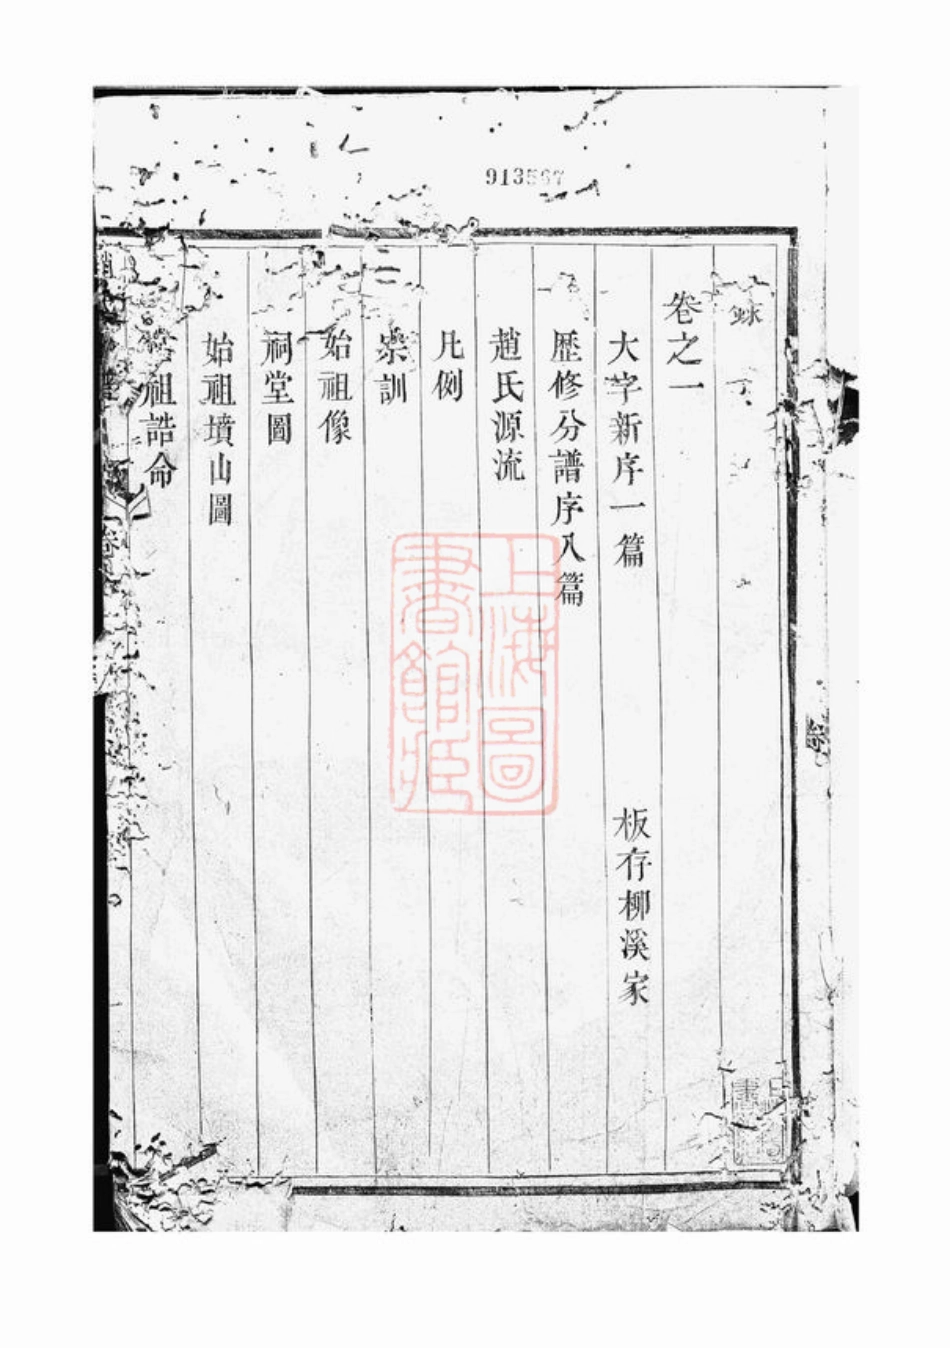 913567
錄
卷之一
大字新序一篇
板存柳溪家
歷修分譜序八篇
趙氏源流
凡例
宗訓
始祖像
祠堂圖
始祖墳山圖
祖誥命
上海圖
書館臧